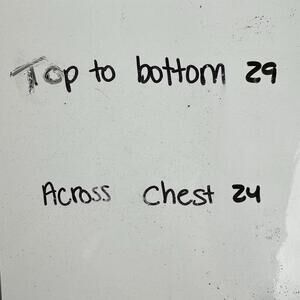 Top to bottom 29
Across chest 24